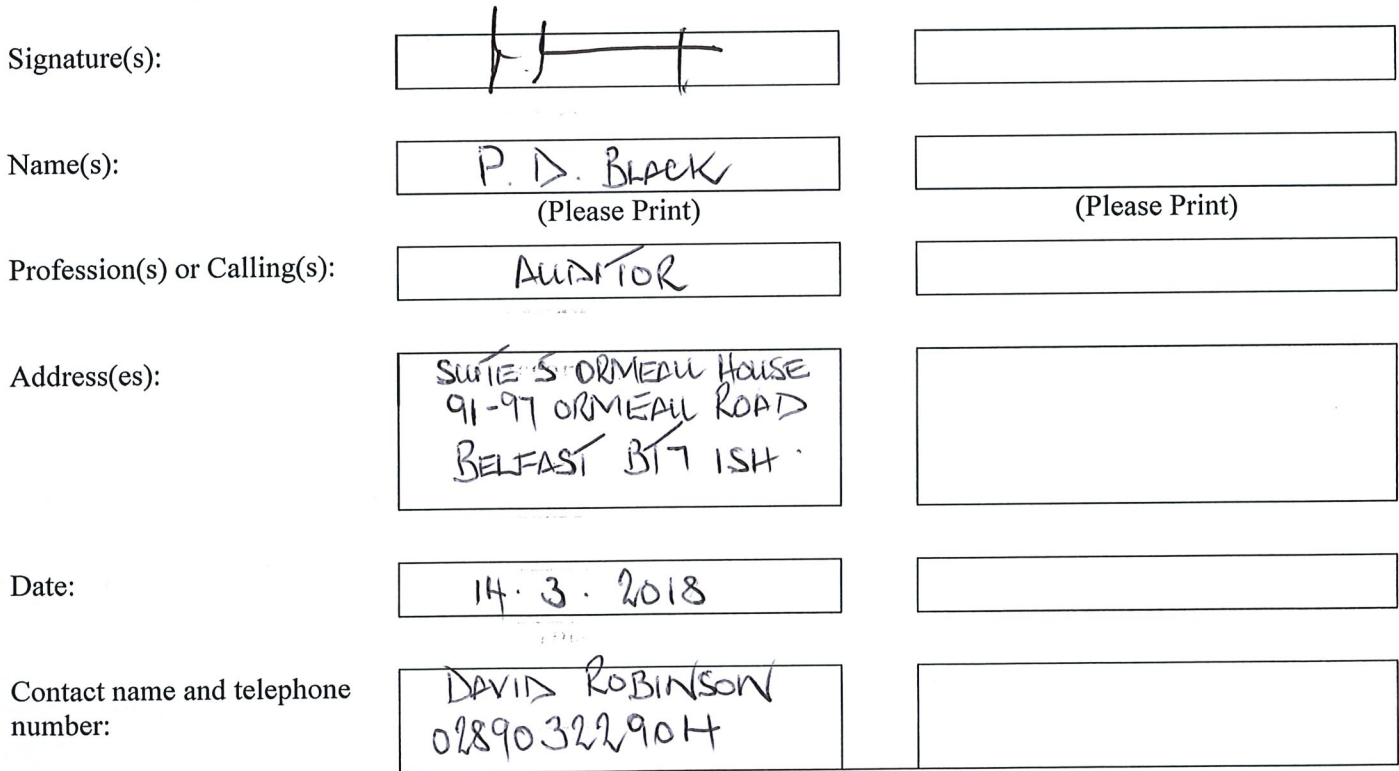 Signature(s):
Name(s):
P. D. BLACK
(Please Print)
(Please Print)
Profession(s) or Calling(s):
AUDITOR
Address(es):
SUITE 5 ORMEAU HOUSE
91-97 ORMEAU ROAD
BELFAST BT7 1SH.
Date:
14.3.2018
Contact name and telephone
number:
DAVID ROBINSON
02890322904